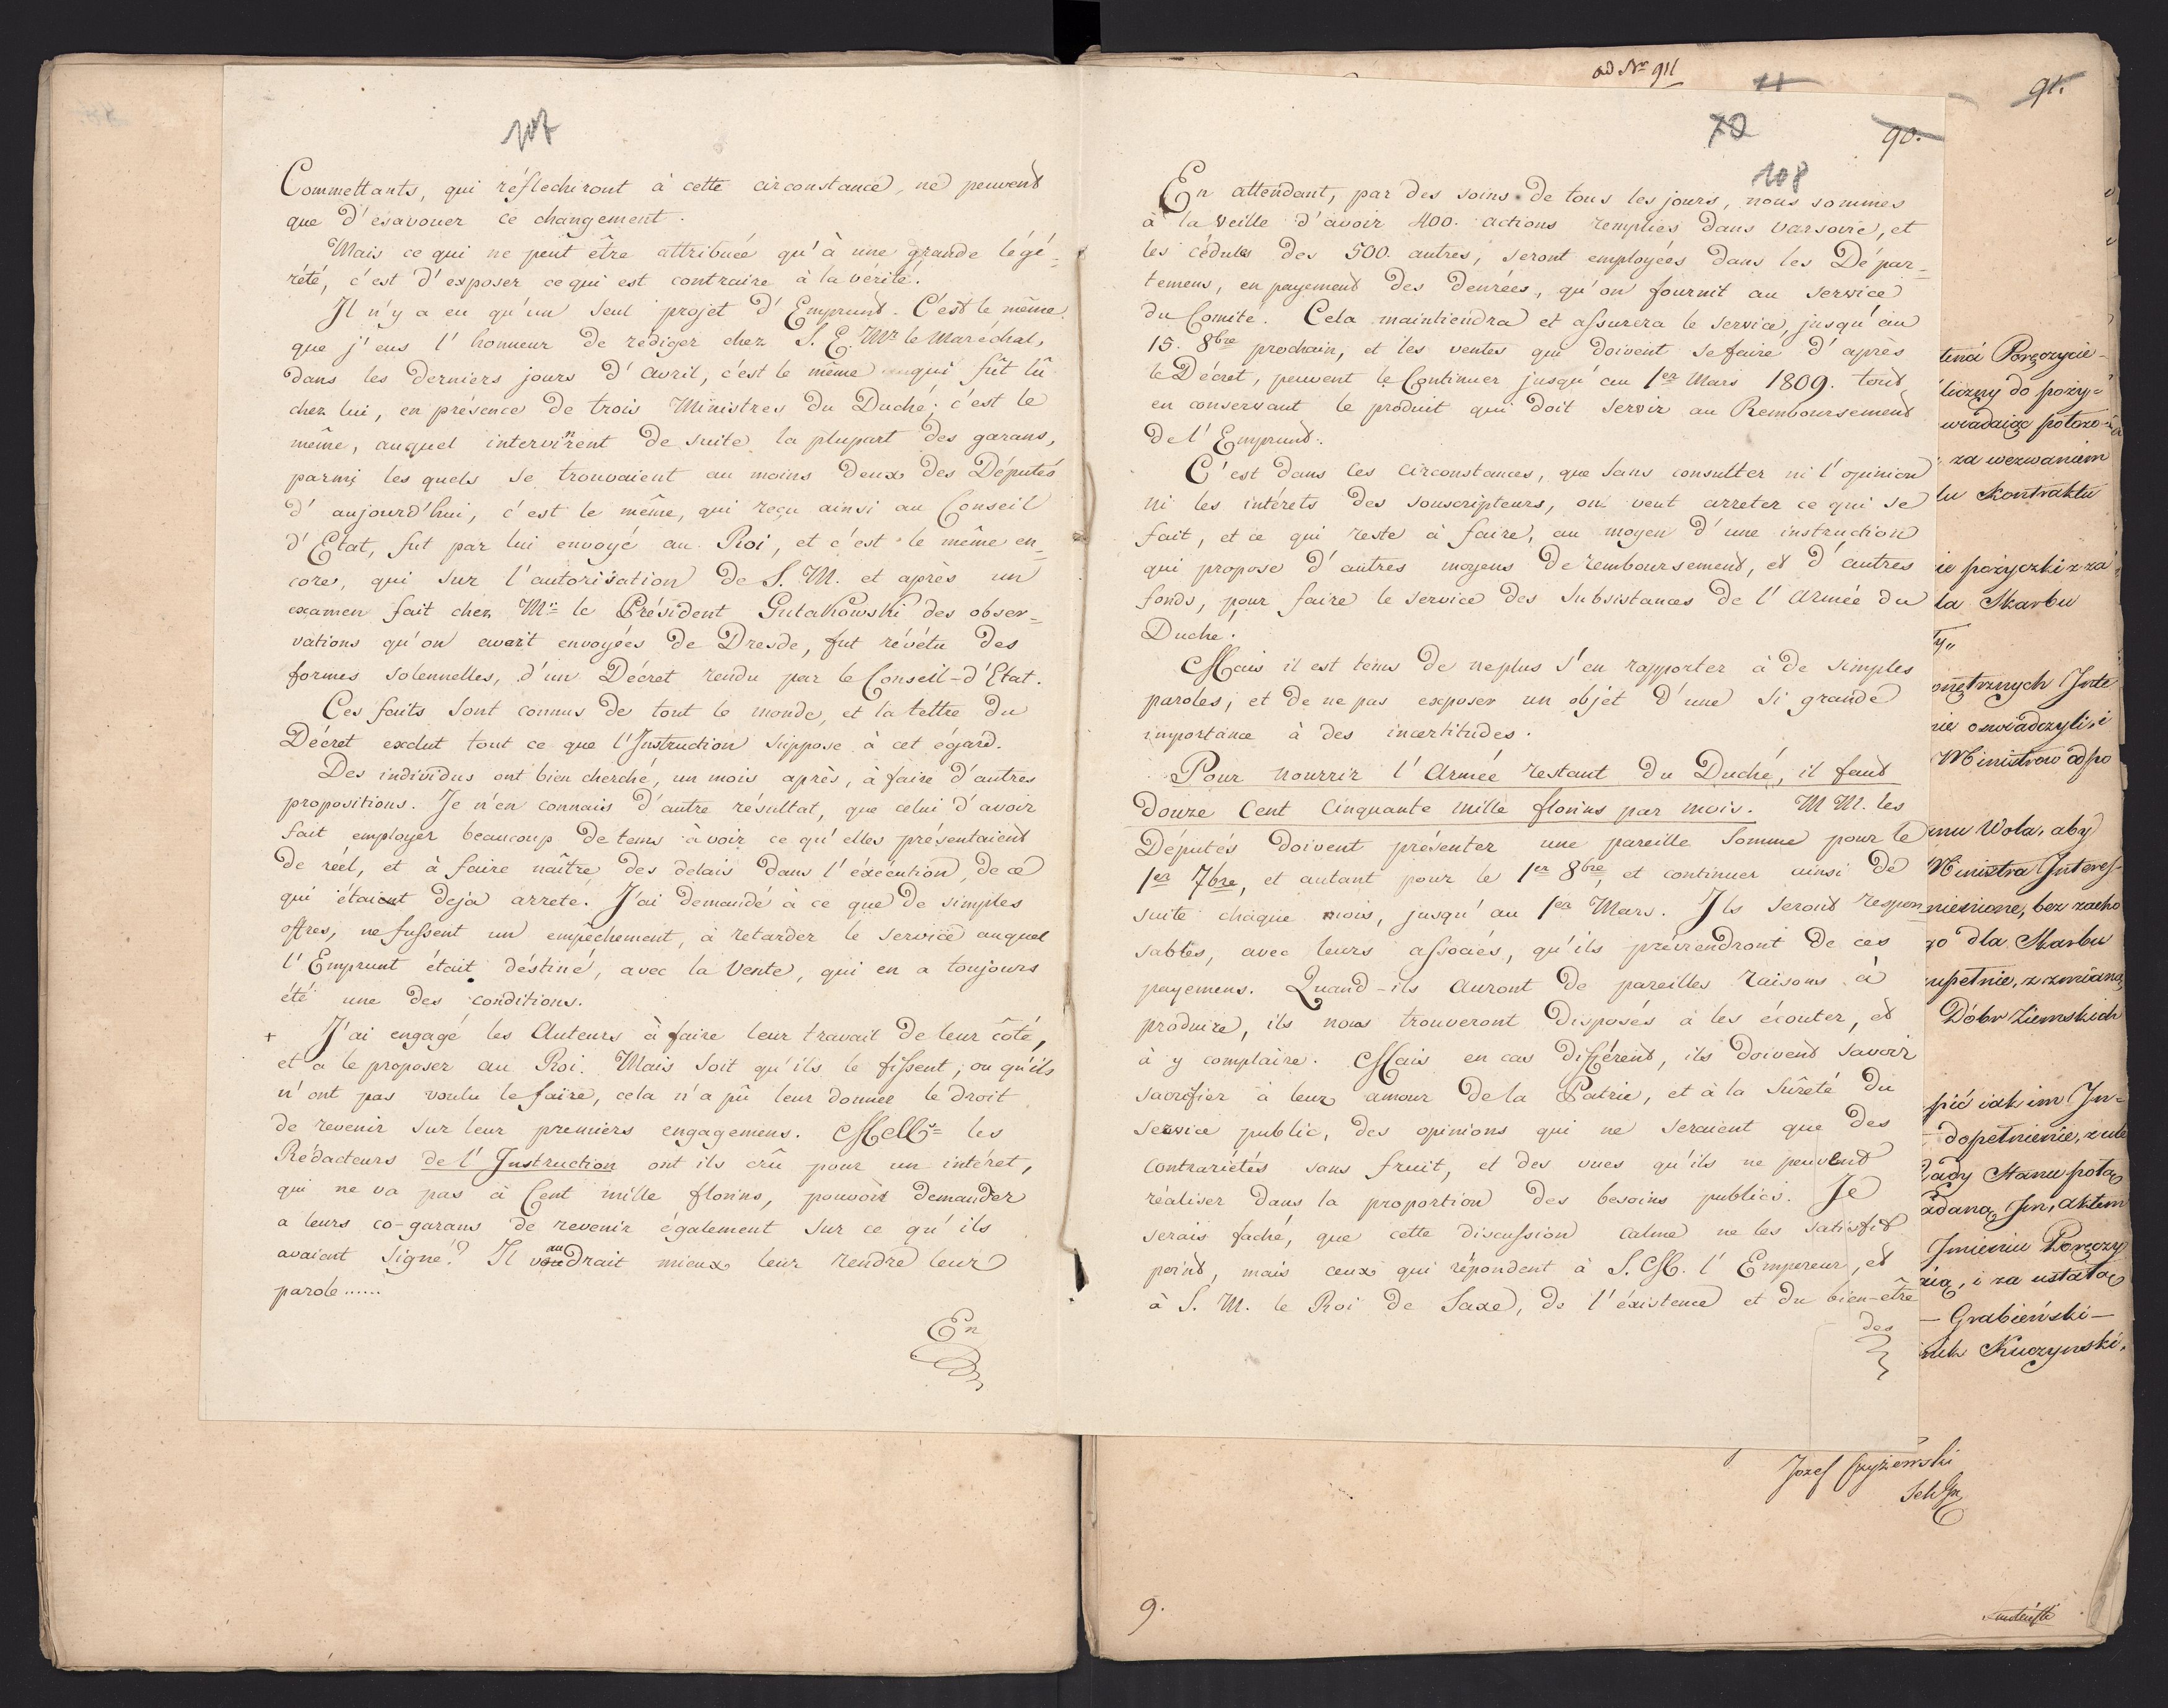 107
Commettants, qui réflechiront à cette circonstance, ne peuvent
que d'esavouer ce changement.
Mais ce qui ne peut être attribuée qu'à une grande légé-
reté, c'est d'exposer ce qui est contraire à la vérité.
Il n'y a eu qu'un seul projet d'Emprunt. C'est le même
que j'eus l'honneur de rédiger chez S. E. Mr le Maréchal,
dans les derniers jours d'Avril, c'est le même qui fût lû
chez lui, en présence de trois Ministres du Duché; c'est le
même, auquel intervinrent de suite la plupart des garans,
parmi les quels se trouvaient au moins deux des Députés
d'aujourd'hui, c'est le même, qui reçu ainsi au Conseil
d'Etat, fut par lui envoyé au Roi, et c'est le même en-
core, qui sur l'autorisation de S. M. et après un
examen fait chez Mr le Président Gutakowski des obser-
vations qu'on avait envoyées de Dresde, fut révétu des
formes solennelles, d'un Décret rendu par le Conseil-d'Etat.
Ces faits sont connus de tout le monde, et la lettre du
Décret exclut tout ce que l'Instruction suppose à cet égard.
Des individus ont bien cherché, un mois après, à faire d'autres
propositions. Je n'en connais d'autre résultat, que celui d'avoir
fait employer beaucoup de tems à voir ce qu'elles présentaient
de réel, et à faire naître des delais dans l'éxécution, de ce
qui étaient deja arreté. J'ai demandé à ce que de simples
offres, ne fussent un empêchement, à retarder le service auquel
l'Emprunt était déstiné, avec la Vente, qui en a toujours
été une des conditions.
+ J'ai engagé les Auteurs à faire leur travail de leur côté,
et à le proposer au Roi. Mais soit qu'ils le fissent, ou qu'ils
n'ont pas voulu le faire, cela n'a pû leur donner le droit
de revenir sur leur premiers engagemens. les
Rédacteurs de l'Instruction ont ils crû pour un intéret,
qui ne va pas à Cent mille florins, pouvoir demander
a leurs co-garans de revenir également sur ce qu'ils
avaient signé? Il vaudrait mieux leur rendre leur
parole......
En
ad No 911
11
91.
72
90.
108
En attendant, par des soins de tous les jours, nous sommes
à la veille d'avoir 400. actions remplies dans Varsovie, et
les cédules des 500. autres, seront employées dans les Dépar-
temens, en payement des denrées, qu'on fournit au service
du Comité. Cela maintiendra et assurera le service, jusqu'au
15. 8bre prochain, et les ventes qui doivent se faire d'après
le Décret, peuvent le Continuer jusqu'au 1er Mars 1809. tout
en conservant le produit qui doit servir au Remboursement
de l'Emprunt.
C'est dans ces circonstances, que sans consulter ni l'opinion
ni les intérets des souscripteurs, on veut arreter ce qui se
fait, et ce qui reste à faire, au moyen d'une instruction
qui propose d'autres moyens de remboursement, et d'autres
fonds, pour faire le service des subsistances de l'Armée du
Duché.
Mais il est tems de neplus s'en rapporter à de simples
paroles, et de ne pas exposer un objét d'une si grande
importance à des incertitudes.
Pour nourrir l'Armée restant du Duché, il faut
douze Cent Cinquante mille florins par mois. M M. les
Députés doivent présenter une pareille Somme pour le
1er 7bre, et autant pour le 1er 8bre, et continuer ainsi de
suite chaque mois, jusqu'au 1er Mars. Ils seront respon-
sables, avec leurs associés, qu'ils préviendront de ces
payemens. Quand-ils auront de pareilles raisons à
produire, ils nous trouveront disposés à les écouter, et
à y complaire. Mais en cas différent, ils doivent savoir
sacrifier à leur amour de la Patrie, et à la sûreté du
service public, des opinions qui ne seraient que des
contrariétés sans fruit, et des vues qu'ils ne peuvent
réaliser dans la proportion des besoins publics. Je
serais faché, que cette discussion calme ne les satisfit
point, mais ceux qui répondent à S. M. l'Empereur, et
à S. M. le Roi de Saxe, de l'éxistence et du bien-être
des
liczny do poży-
wiadaiąc
za wezwaniem
Kontraktu
pożyczki z za
la Skarbu
oświadczyli, i
Ministrow odpo
Wola, aby
Ministra Interes-
bez zacho
go dla Skarbu
upełnie, z zmianą
Dóbr Ziemskich
iak im In-
dopełnienie,
Stanu
Aktem
Imieniu Poręczy
i za ustałą
— Grabieński —
Kuczynski,
Jozef
9.